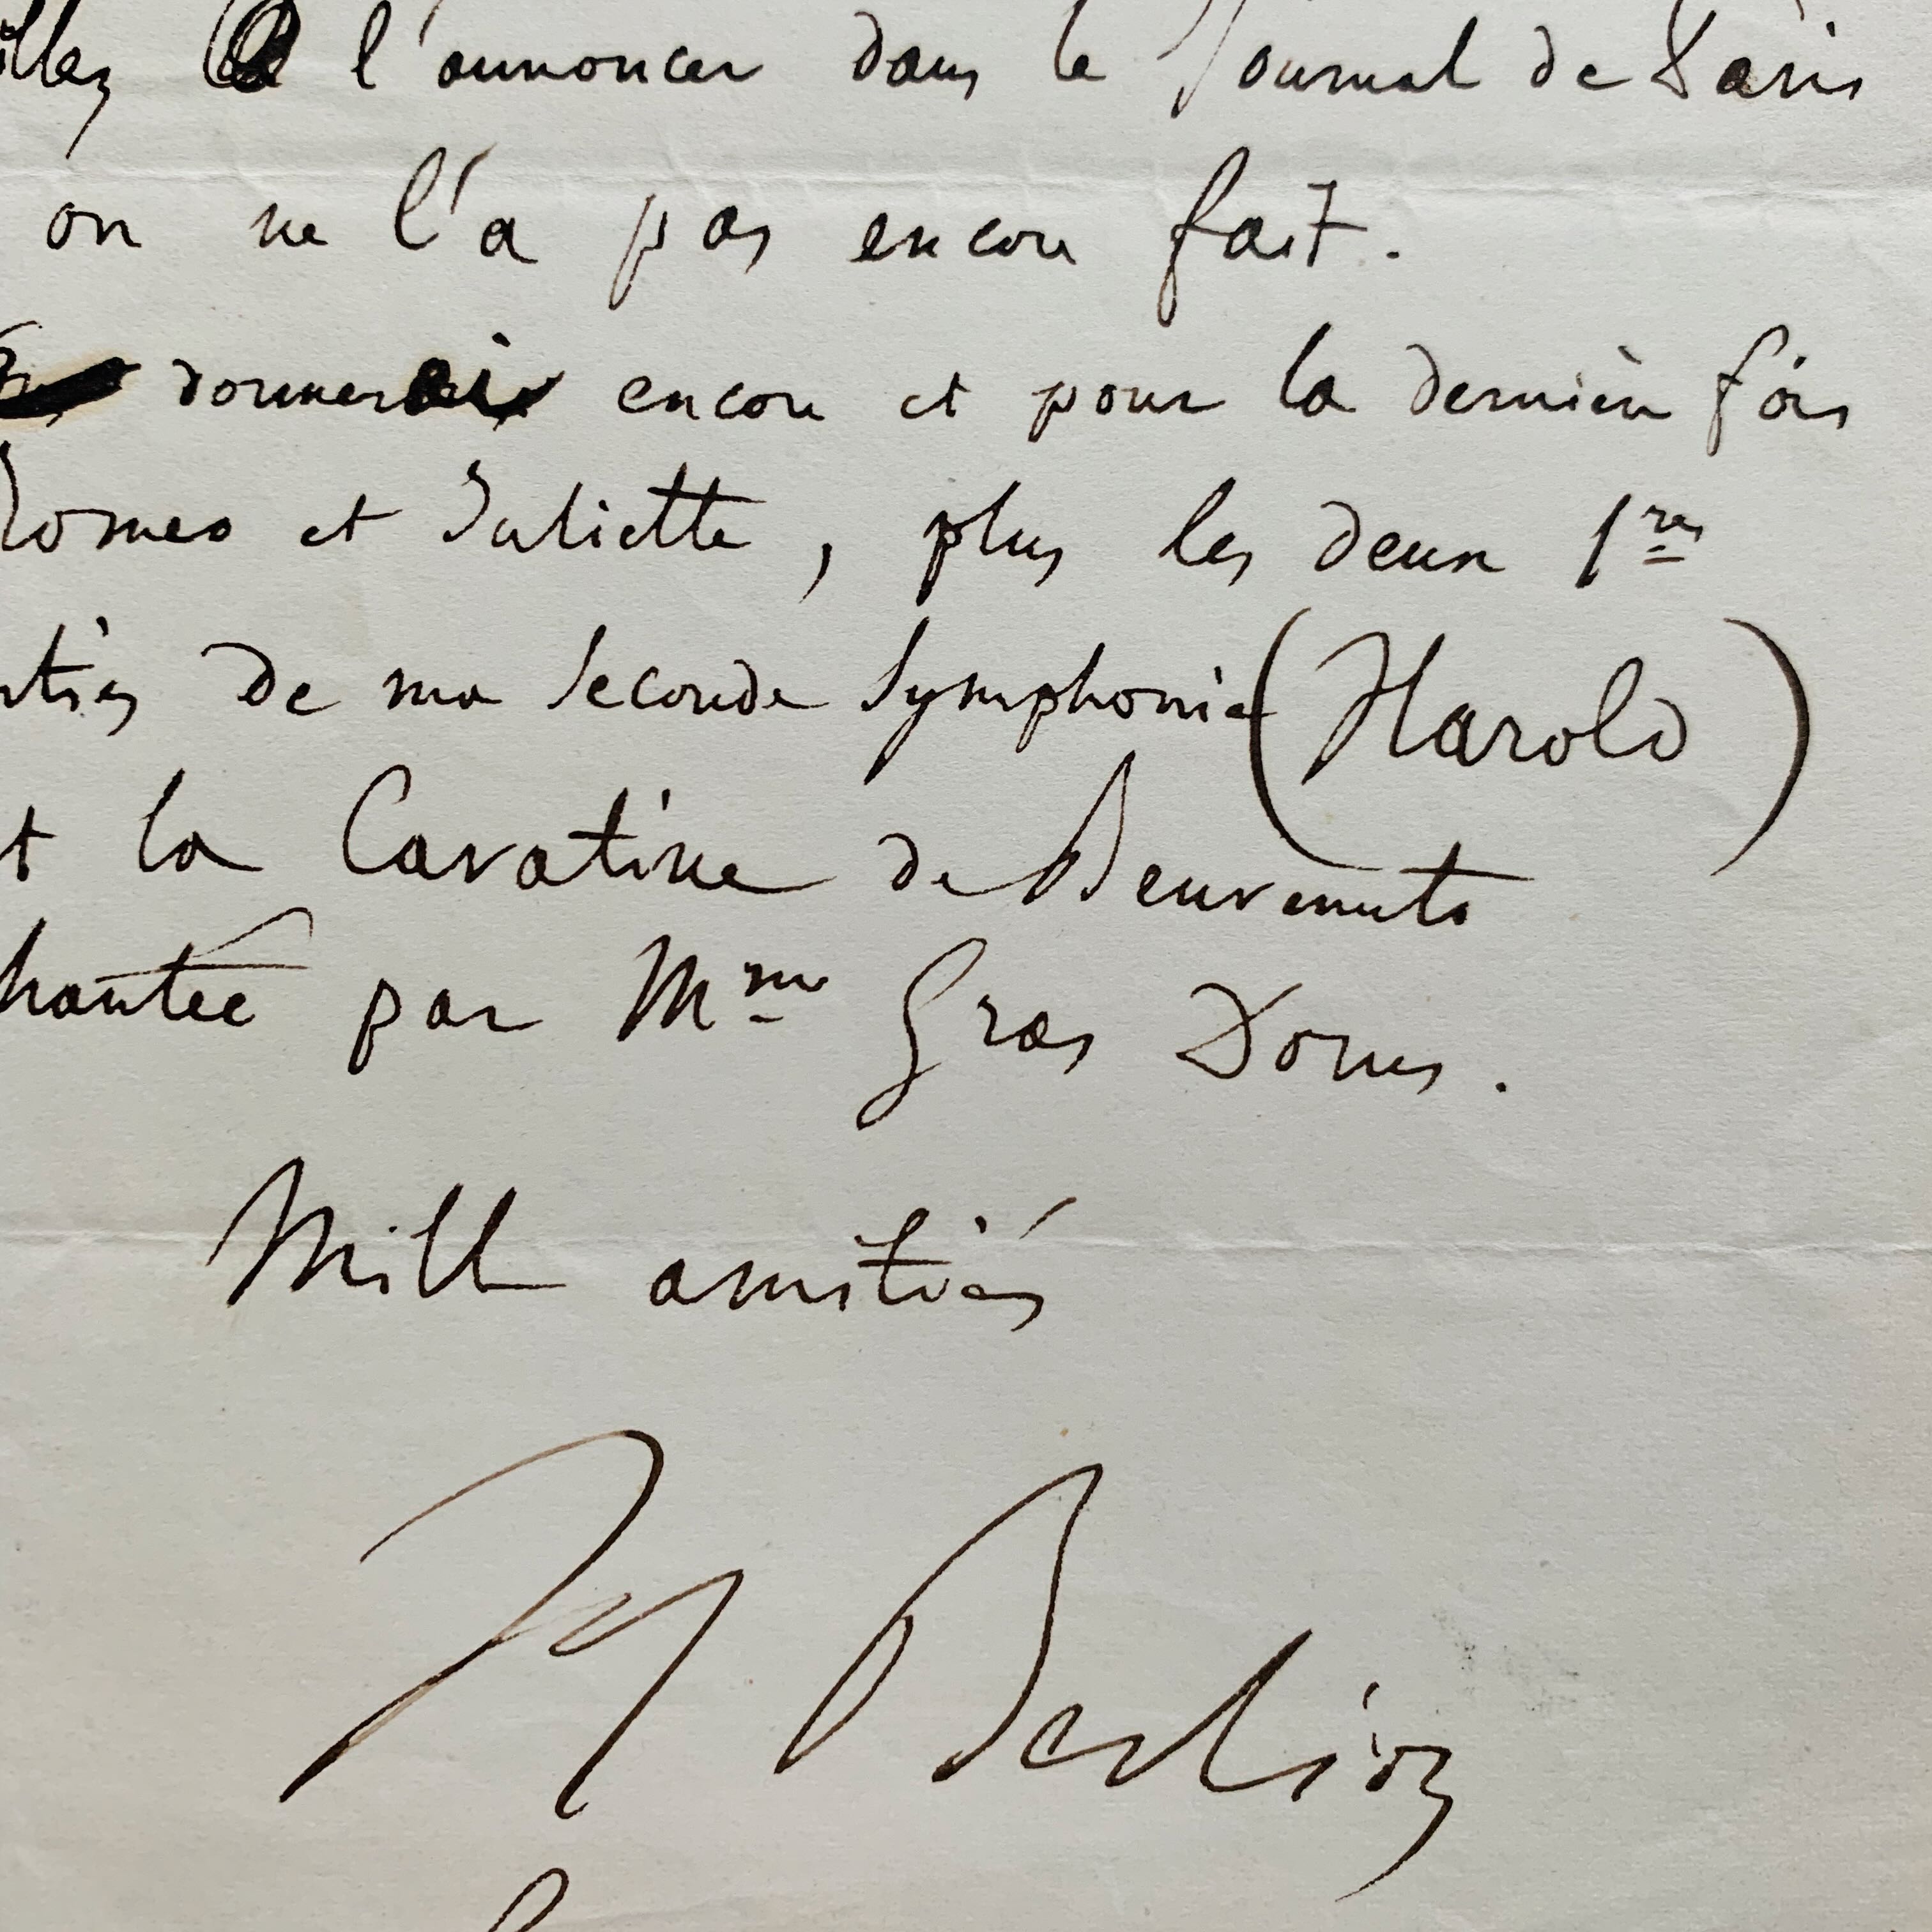 illez l'annoncer dans le Journal de Paris
on ne l'a pas encore fait.
donnerai encore et pour la dernière fois
Romeo et Juliette, plus les deux 1res
rties de ma seconde Symphonie (Harold)
t la Cavatine de Benvenuto
hantée par Mme Gras Dorus.
Mille amitiés
H Berlioz